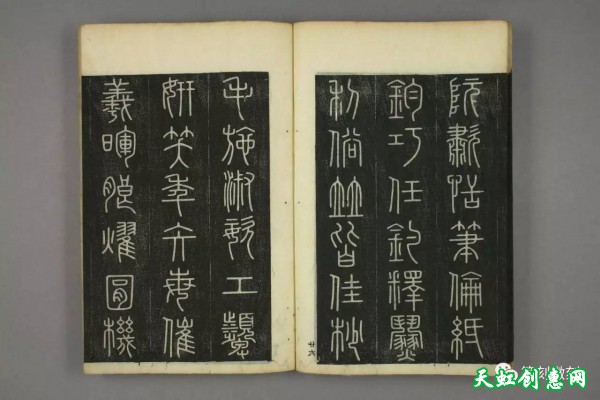 阮嘯恬筆倫紙
鈞巧任釣釋紛
利俗竝皆佳妙
廿六
毛施淑姿工顰
妍笑年矢每催
羲暉朗燿圓機
天虹创意网